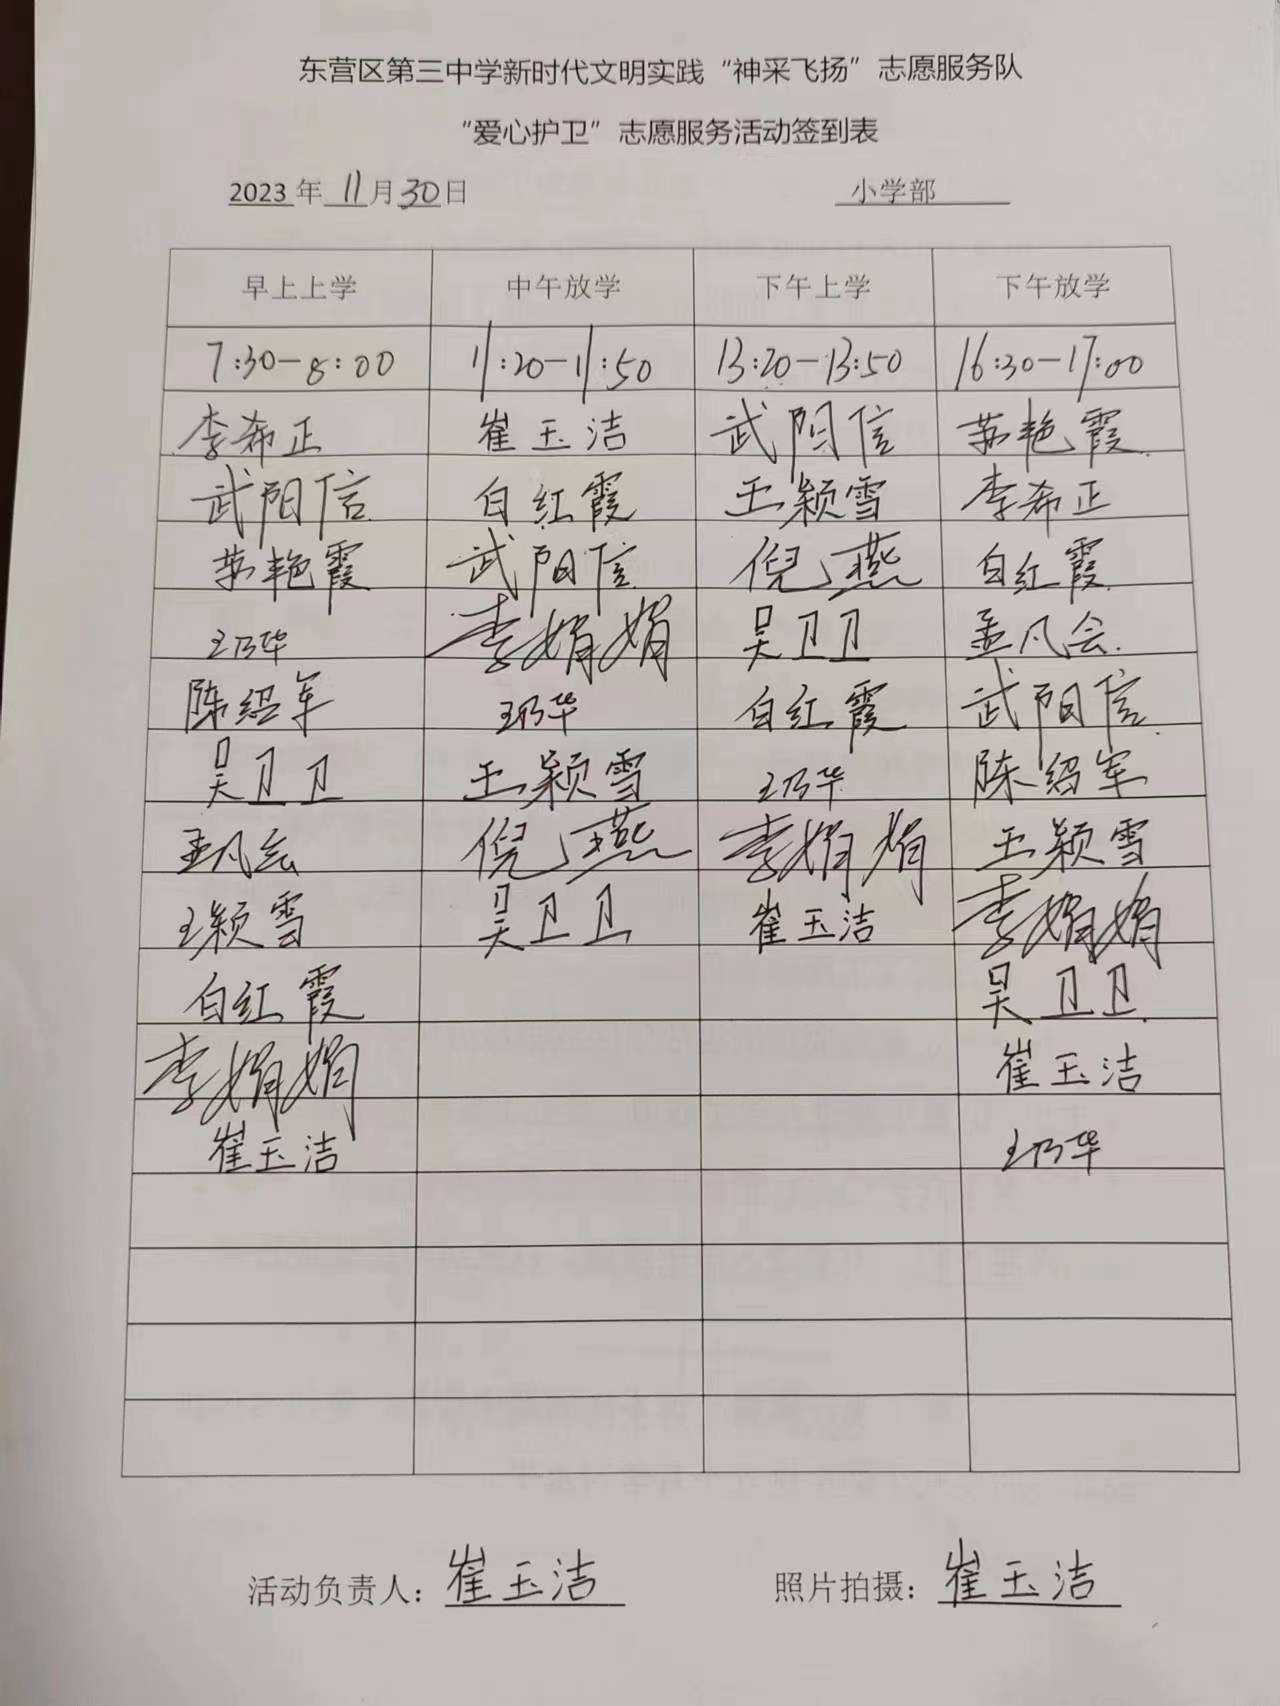 东营区第三中学新时代文明实践“神采飞扬”志愿服务队
“爱心护卫”志愿服务活动签到表
2023年 11月30日 小学部
早上上学 中午放学 下午上学 下午放学
7:30-8:00 11:20-11:50 13:20-13:50 16:30-17:00
李希正 崔玉洁 武阳信 苏艳霞
武阳信 白红霞 王颖雪 李希正
苏艳霞 武阳信 倪燕 白红霞
王乃华 李娟娟 吴卫卫 孟凡会
陈绍军 王乃华 白红霞 武阳信
吴卫卫 王颖雪 王乃华 陈绍军
孟凡会 倪燕 李娟娟 王颖雪
王颖雪 吴卫卫 崔玉洁 李娟娟
白红霞 吴卫卫
李娟娟 崔玉洁
崔玉洁 王乃华
活动负责人：崔玉洁 照片拍摄：崔玉洁